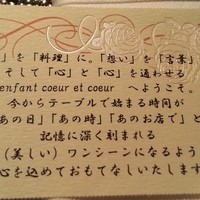 」を「料理」に。「想い」を「言葉」
そして「心」と「心」を通わせる
enfant coeur et coeur へようこそ。
今からテーブルで始まる時間が
あの日」「あの時」「あのお店で」と
記憶に深く刻まれる
(美しい)ワンシーンになるよう
心を込めておもてなしいたします